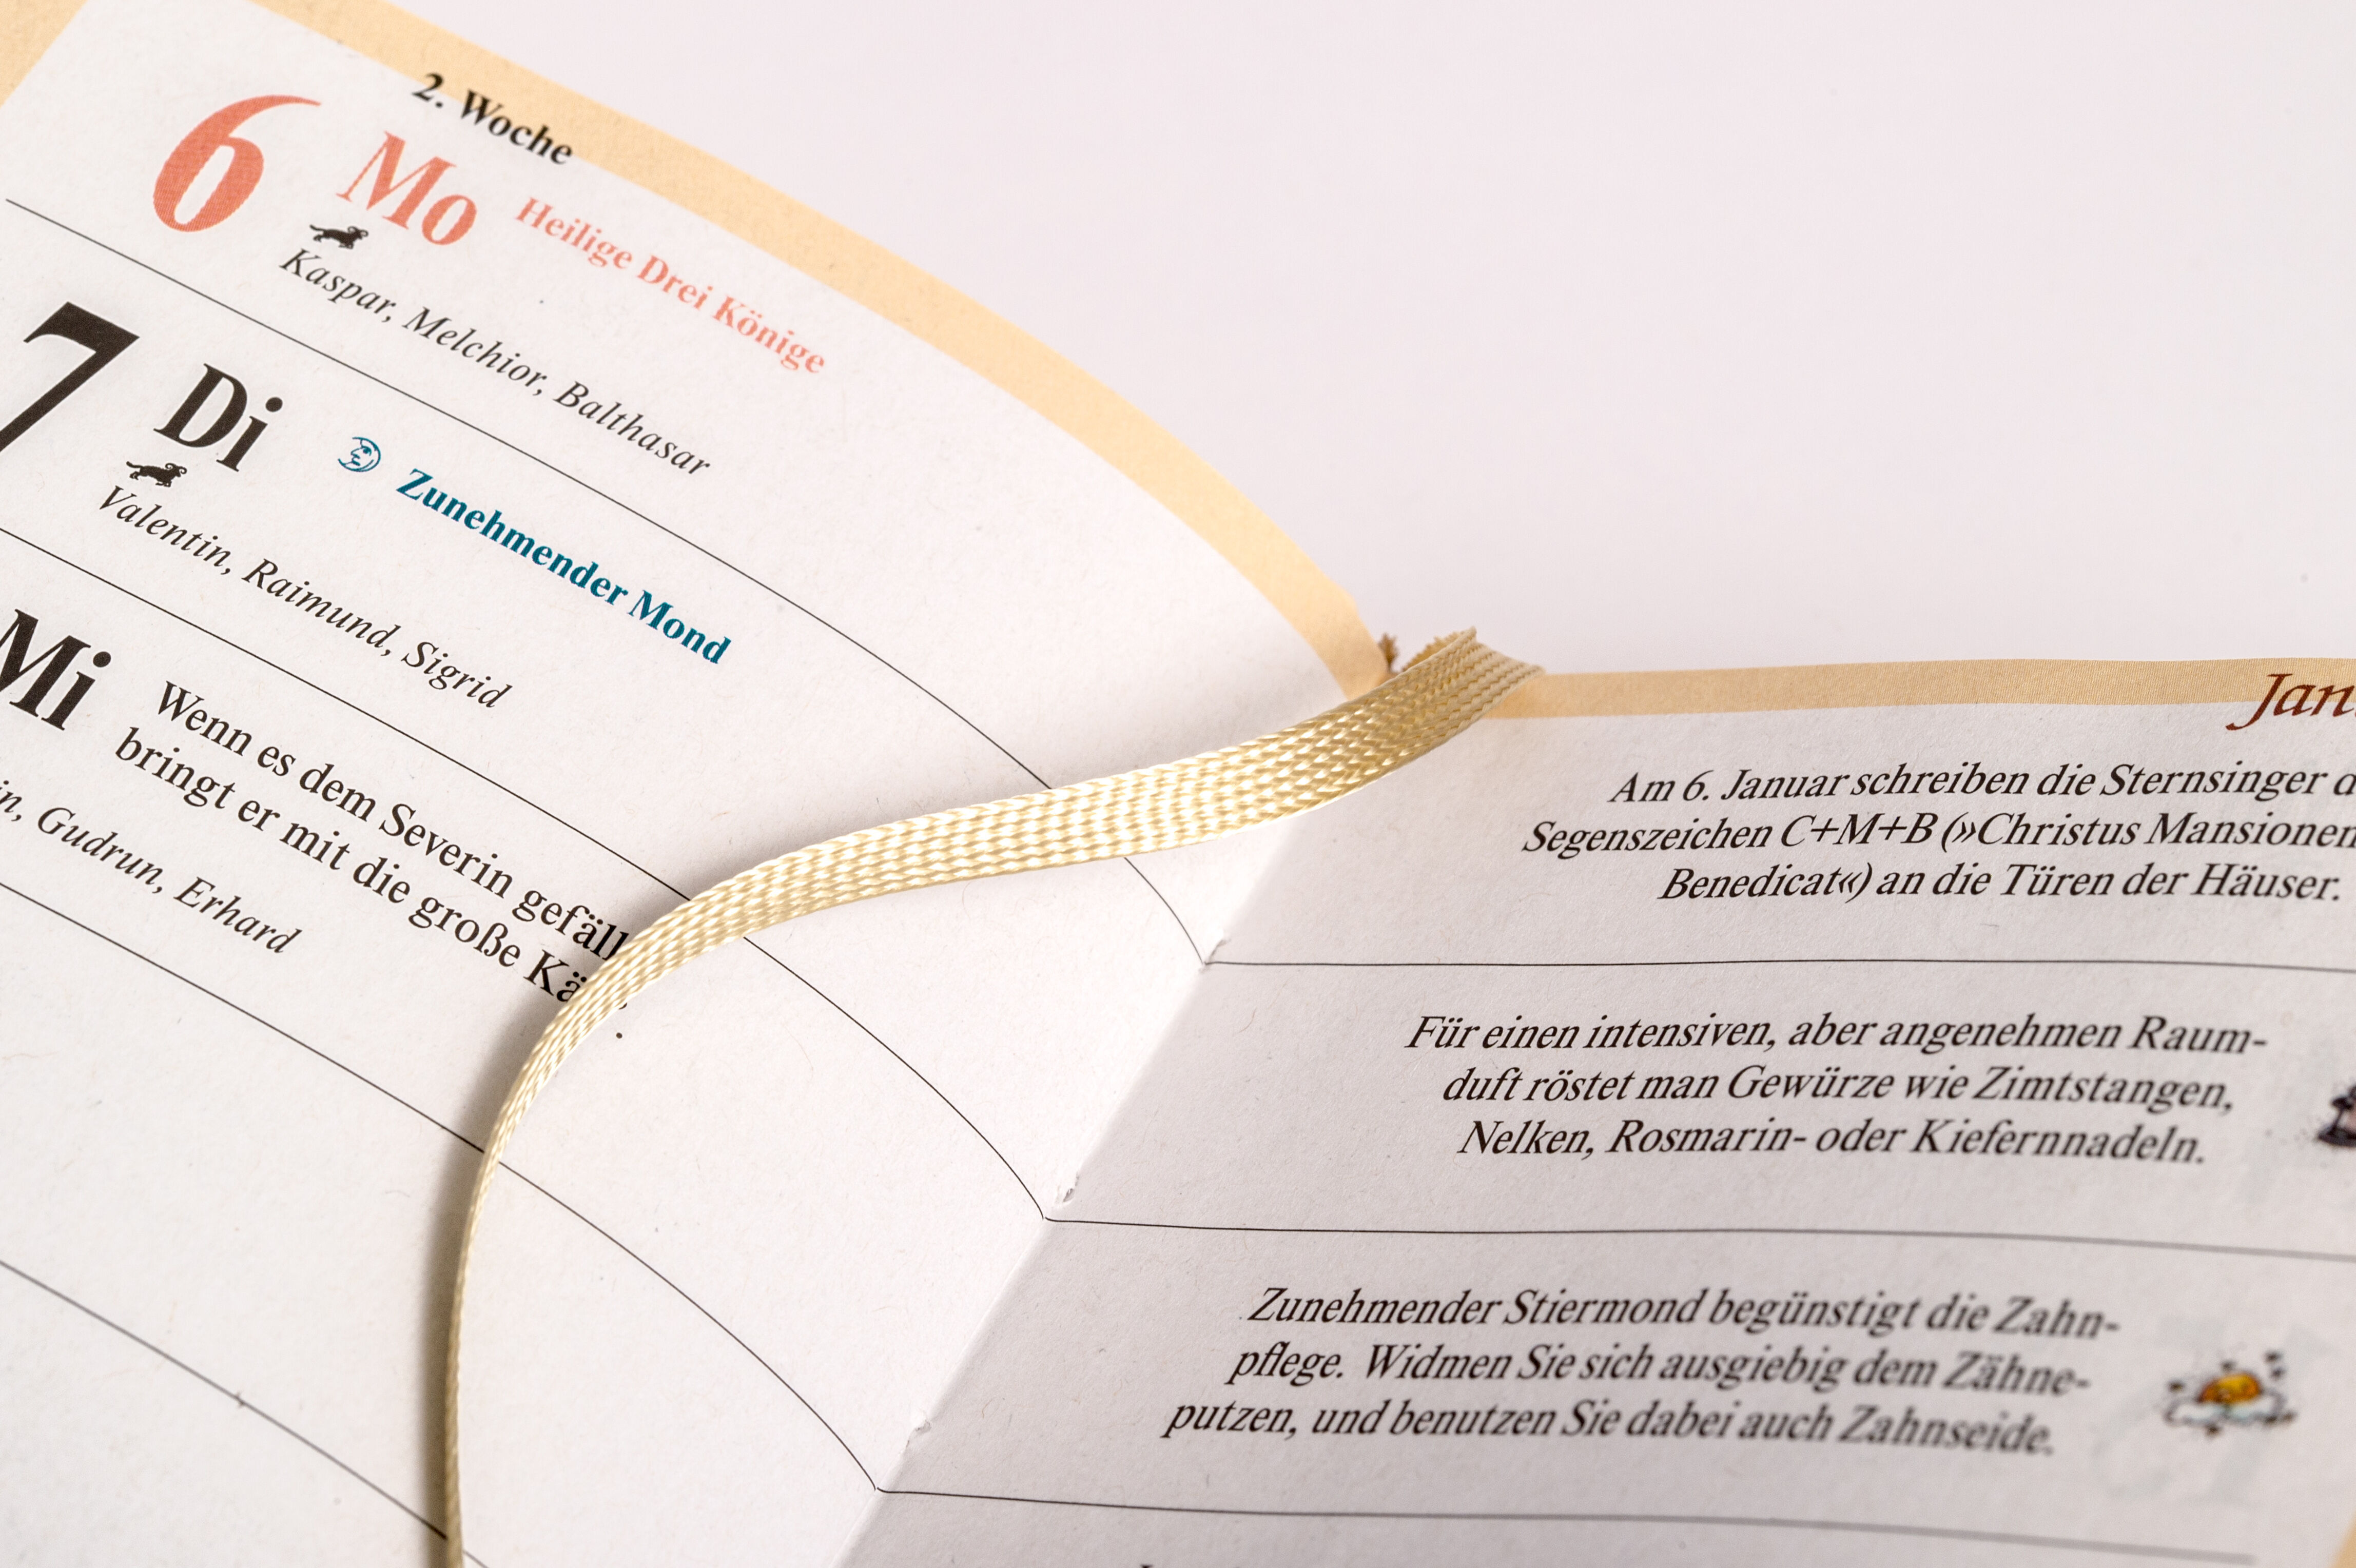 2. Woche
6 Mo Heilige Drei Könige
Kaspar, Melchior, Balthasar
7 Di Zunehmender Mond
Valentin, Raimund, Sigrid
Mi Wenn es dem Severin gefäll
bringt er mit die große Kä
Gudrun, Erhard
Jan
Am 6. Januar schreiben die Sternsinger
Segenszeichen C+M+B (»Christus Mansionem
Benedicat«) an die Türen der Häuser.
Für einen intensiven, aber angenehmen Raum-
duft röstet man Gewürze wie Zimtstangen,
Nelken, Rosmarin- oder Kiefernnadeln.
Zunehmender Stiermond begünstigt die Zahn-
pflege. Widmen Sie sich ausgiebig dem Zähne-
putzen, und benutzen Sie dabei auch Zahnseide.